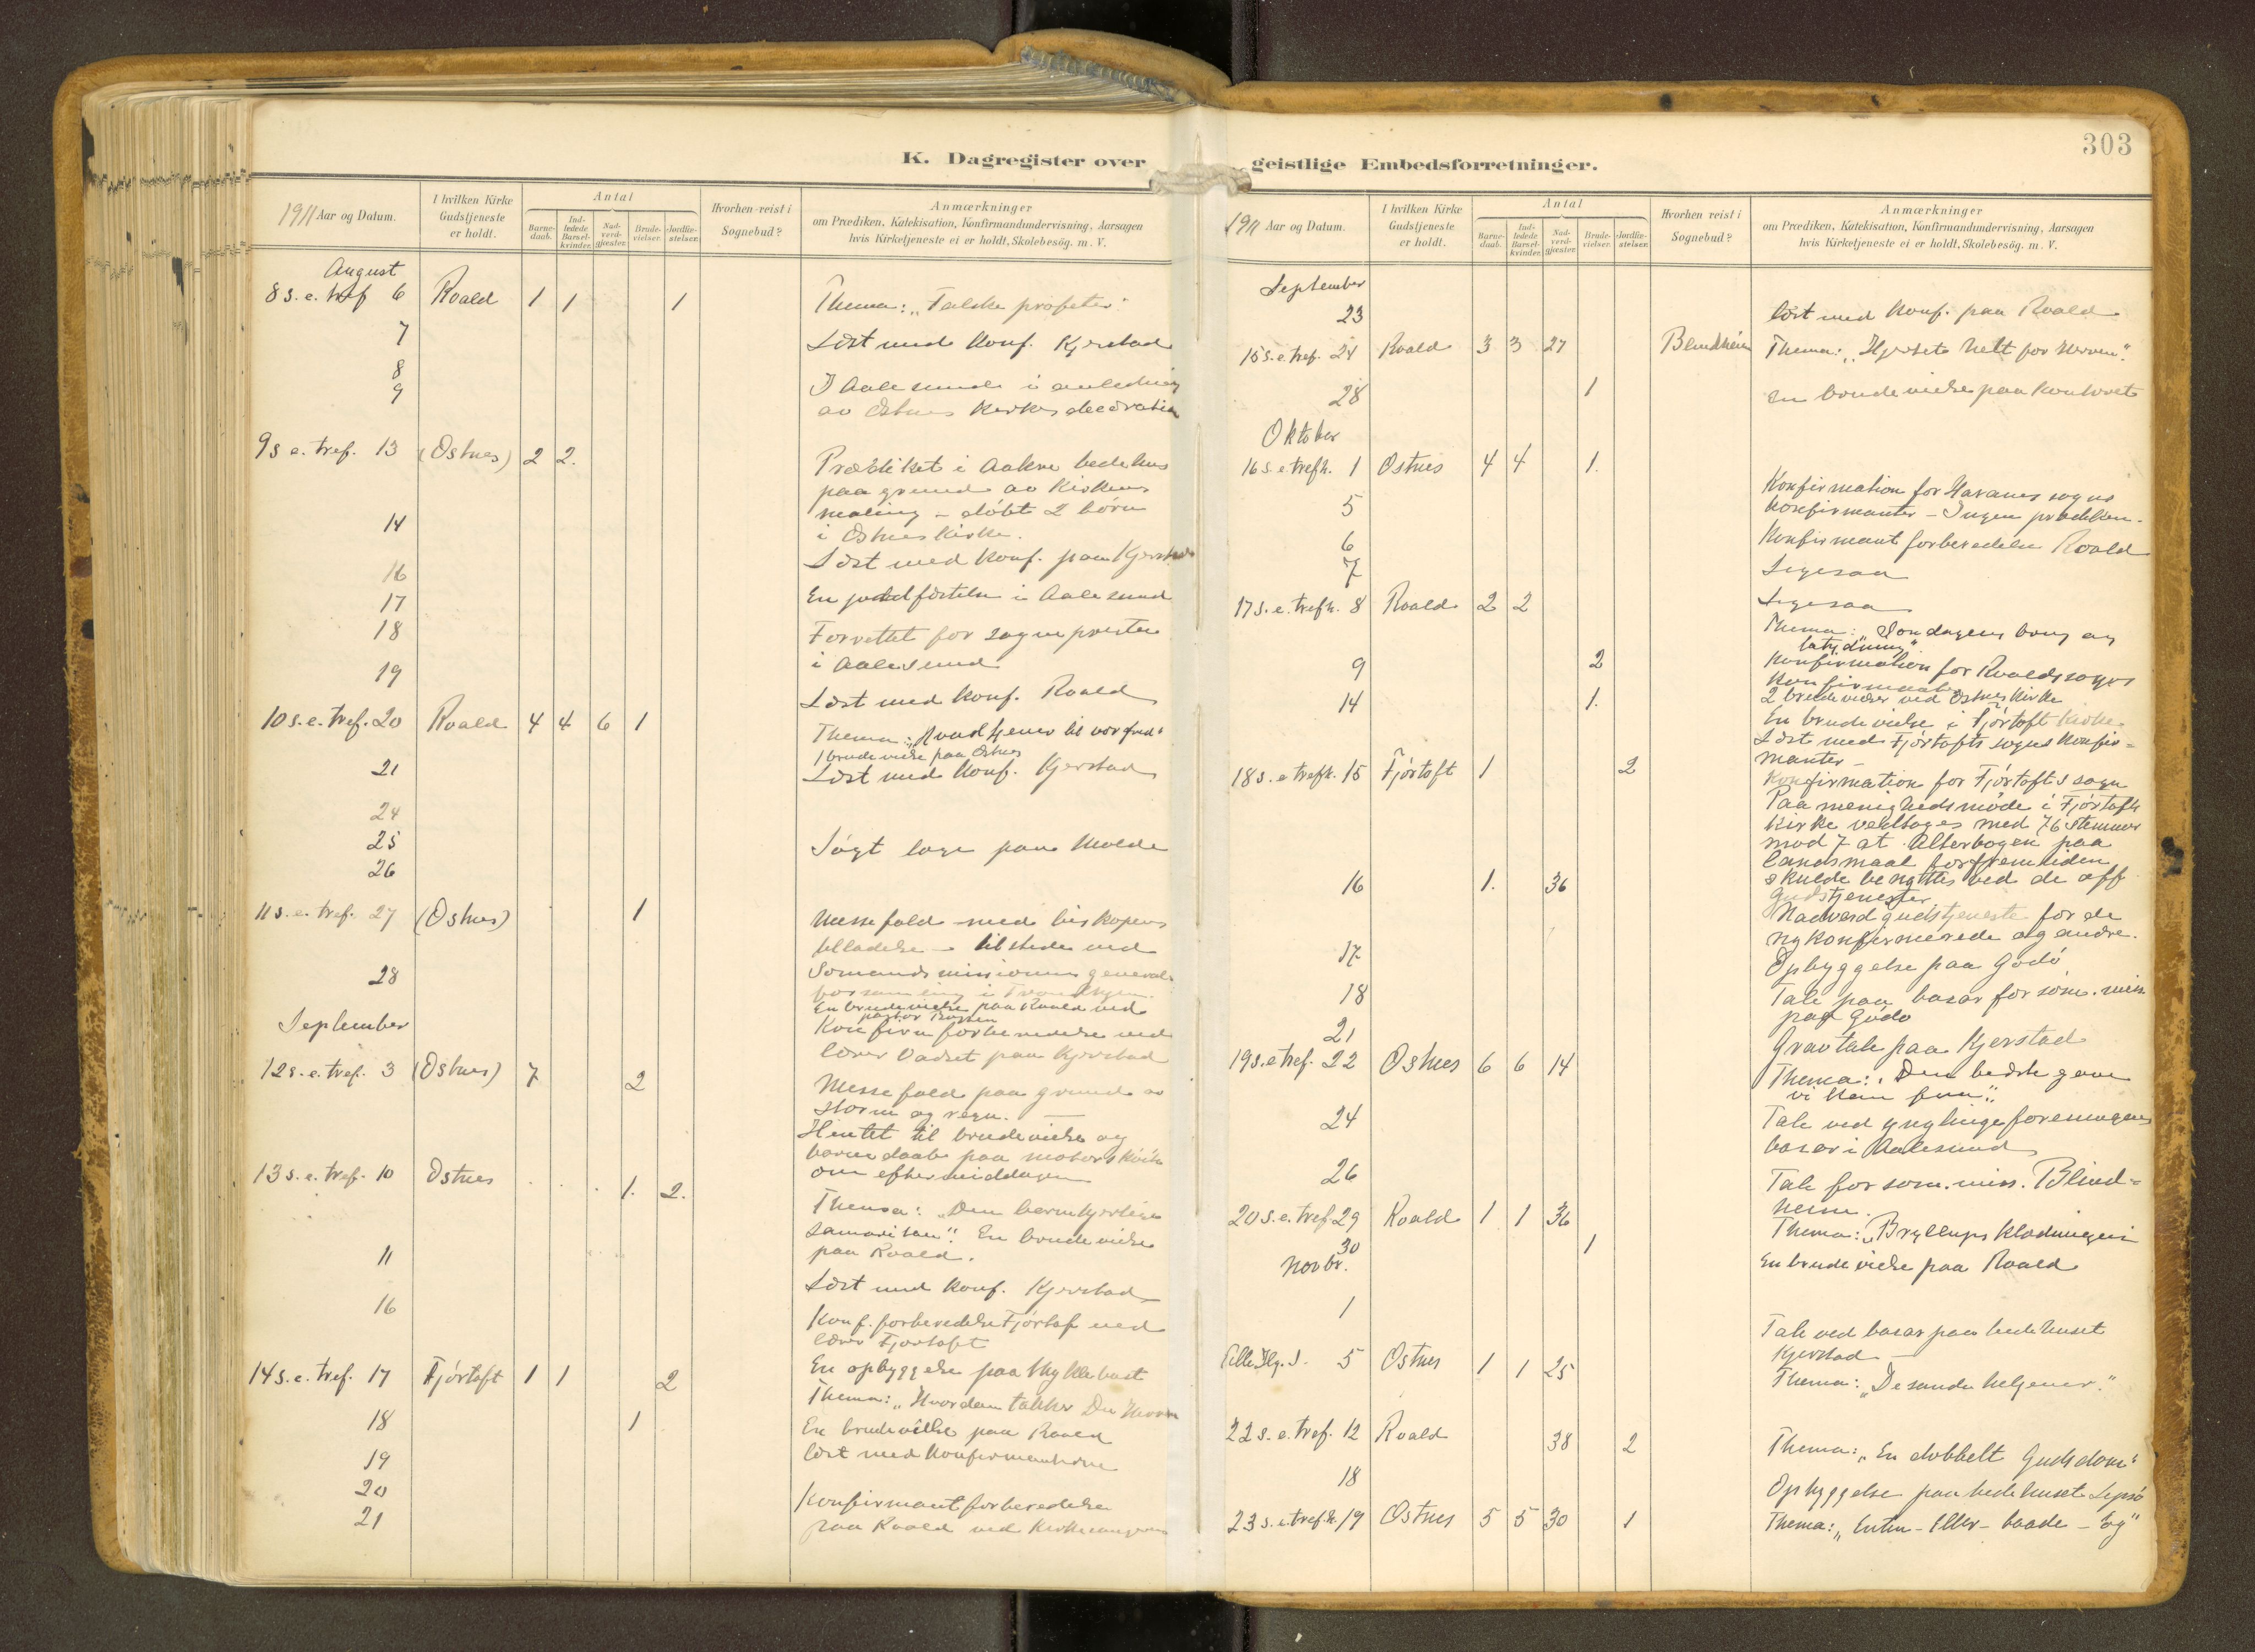 K. Dagregister over
1911 Aar og Datum.
I hvilken Kirke Gudstjeneste er holdt.
Antal
Barne-daab.
Ind-ledede Barsel-kvinder.
Nad-verd-gjæster.
Brude-vielser.
Jordfæ-stelser.
Hvorhen reist i Sognebud?
Anmærkninger
om Prædiken, Katekisation, Konfirmandundervisning, Aarsagen
hvis Kirketjeneste ei er holdt, Skolebesøg. m. V.
August
8 s. e. tref 6 Roald 1 1 1 Thema: „Falske profeter"
7 Læst med Konf. Kjerstad
8
9 I Aalesund i anledning
av Østnes Kirkes decoration
9 s e. tref. 13 (Østnes) 2 2. Prædiket i Aakre bedehus
paa grund av Kirkens
maling – døbt 2 børn
14 i Østnes Kirke.
Læst med Konf. paa Kjerstad
16 En jordfæstelse i Aalesund
17
18 Forrettet for sognepresten
i Aalesund
19 Læst med Konf. Roald
10 s. e. tref. 20 Roald 4 4 6 1 Thema: „Hvad tjener til vor fred"
1 brudevielse paa Østnes
21 Læst med Konf. Kjerstad
24
25 Søgt læge paa Molde
26
11 s. e. tref. 27 (Østnes) 1 Messefald med biskopens
tilladelse – tilstede ved
28 Sømandsmissionens general-
forsamling i Trondhjem.
En brudevielse paa Roald ved
pastor
September
Konfirm forberedelse ved
lærer Vadset paa Kjerstad
12 s. e. tref. 3 (Østnes) 7 2 Messefald paa grund av
storm og regn. —
Hentet til brudevielse og
barnedaab paa motorskøite
om eftermiddagen
13 s. e. tref. 10 Østnes 1. 2.
Thema: „Den barmhjertige
samaritan". En brudevielse
paa Roald.
11 Læst med Konf. Kjerstad
16 Konf. forberedelse Fjørtoft ved
lærer Fjørtoft
En opbyggelse paa Myklebust
14 s. e. tref. 17 Fjørtoft 1 1 2 Thema: „Hvordan takker Du Herren
18 1 En brudevielse paa Roald
19 Læst med Konfirmanterne
20 Konfirmantforberedelse
21 paa Roald ved Kirkesangeren
303
geistlige Embedsforretninger.
1911 Aar og Datum.
I hvilken Kirke Gudstjeneste er holdt.
Antal
Barne-daab.
Ind-ledede Barsel-kvinder.
Nad-verd-gjæster.
Brude-vielser.
Jordfæ-stelser.
Hvorhen reist i Sognebud?
Anmærkninger
om Prædiken, Katekisation, Konfirmandundervisning, Aarsagen
hvis Kirketjeneste ei er holdt, Skolebesøg. m. V.
September
23 Læst med Konf. paa Roald
15 s. e. tref. 24 Roald 3 3 27 Blindheim Thema: „Hjertets helt for Herren".
28 1 En brudevielse paa Kontoret
Oktober
16 s. e trefh. 1 Østnes 4 4 1. Konfirmation for Haranes sogns
Konfirmanter – Ingen prædiken.
5 Konfirmantforberedelse Roald
6 Ligesaa
7 Ligesaa
17 s. e. trefh. 8 Roald 2 2 Thema: „Søndagens brug og
betydning".
Konfirmation for Roalds sogns
Konfirmanter
9 2 2 brudevielser ved Østnes Kirke
14 1. En brudevielse i Fjørtoft Kirke.
Læst med Fjørtofts sogns Konfir-
manter –
18 s. e trefh. 15 Fjørtoft 1 2 Konfirmation for Fjørtofts sogn
Paa menighedsmøde i Fjørtofts
Kirke vedtages med 76 stemmer
mod 7 at Alterbogen paa
landsmaal for fremtiden
skulde benyttes ved de off
Gudstjenester.
16 1. 36 Nadverdgudstjeneste for de
nykonfirmerede og andre.
17 Opbyggelse paa Godø
18 Tale paa basar for søm. miss.
paa Godø
21 Gravtale paa Kjerstad
19 s. e tref. 22 Østnes 6 6 14 Thema: „Den bedste gave
vi kan faa"
24 Tale ved ynglingeforeningens
basar i Aalesund
26 Tale for søm. miss. Blind-
heim.
20 s. e. tref 29 Roald 1 1 36 Thema: „Bryllupsklædningen
30 1 En brudevielse paa Roald
Novbr.
1 Tale ved basar paa bedehuset
Kjerstad –
Alle Hlg. D. 5 Østnes 1 1 25 Thema: „De sande helgener."
22 s. e. tref. 12 Roald 38 2 Thema: „En dobbelt Gudsdom"
18 Opbyggelse paa bedehuset Lepsø
23 s. e. trefh. 19 Østnes 5 5 30 1 Thema: „Enten – Eller – baade – og"